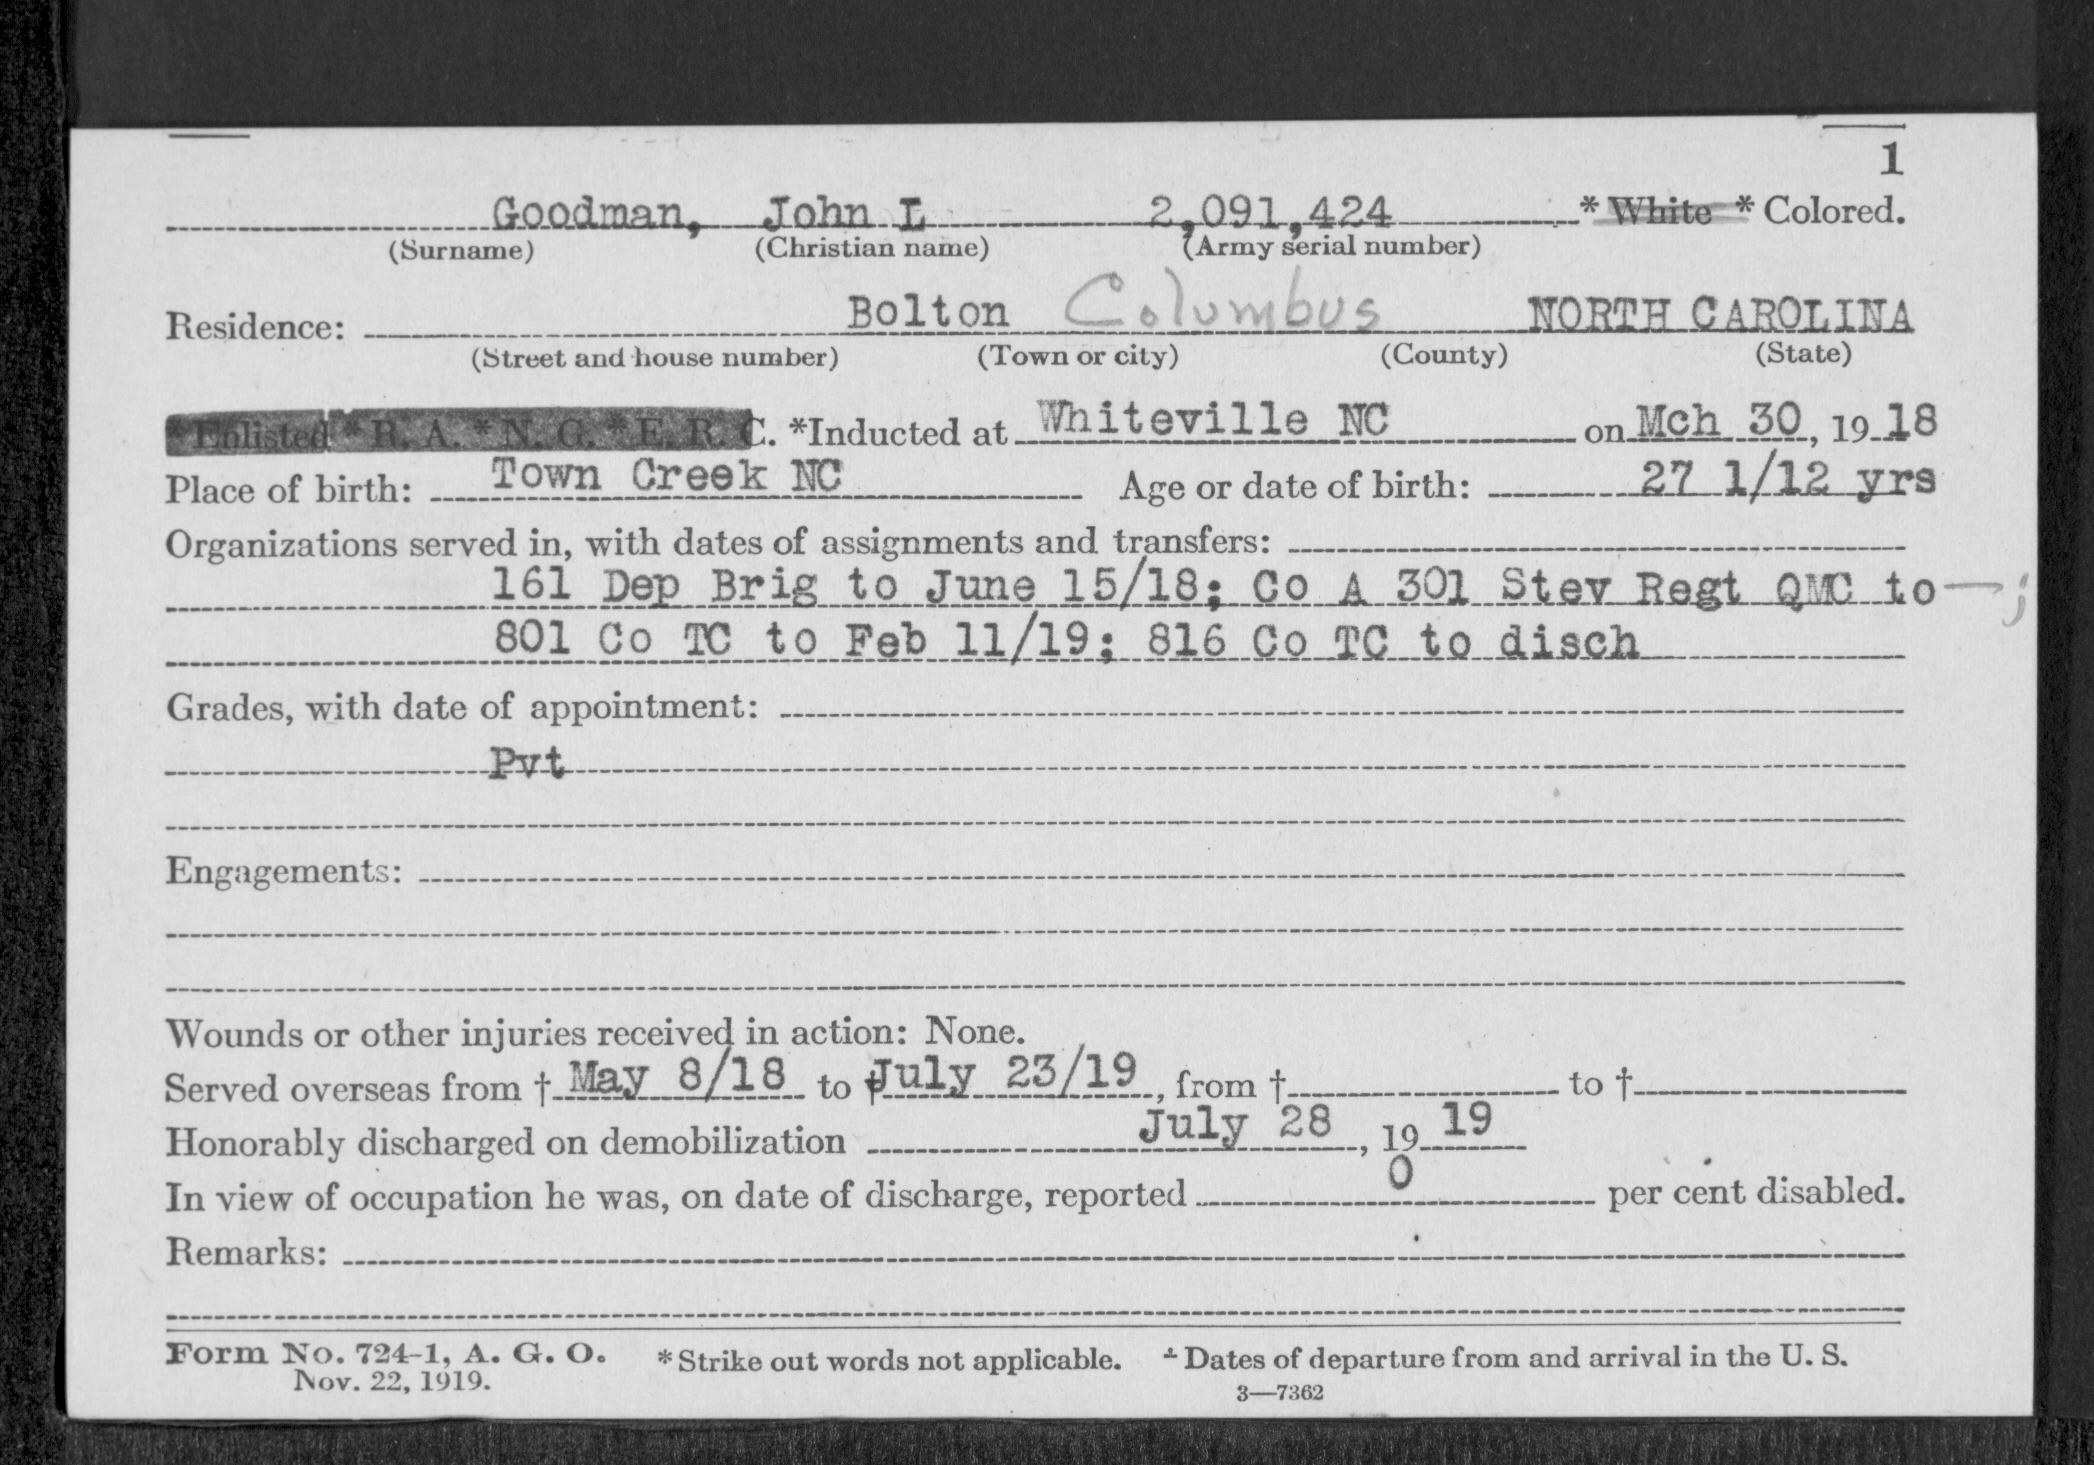 1
Goodman, John L 2,091,424 * White * Colored.
(Surname) (Christian name) (Army serial number)
Residence: Bolton Columbus NORTH CAROLINA
(Street and house number) (Town or city) (County) (State)
*Enlisted *R. A. *N. G. *E. R. C. *Inducted at Whiteville NC on Mch 30, 1918
Place of birth: Town Creek NC Age or date of birth: 27 1/12 yrs
Organizations served in, with dates of assignments and transfers:
161 Dep Brig to June 15/18; Co A 301 Stev Regt QMC to — ;
801 Co TC to Feb 11/19; 816 Co TC to disch
Grades, with date of appointment:
Pvt
Engagements:
Wounds or other injuries received in action: None.
Served overseas from † May 8/18 to † July 23/19, from † to †
Honorably discharged on demobilization July 28, 19 19
In view of occupation he was, on date of discharge, reported 0 per cent disabled.
Remarks:
Form No. 724-1, A. G. O. * Strike out words not applicable. † Dates of departure from and arrival in the U. S.
Nov. 22, 1919. 3—7362